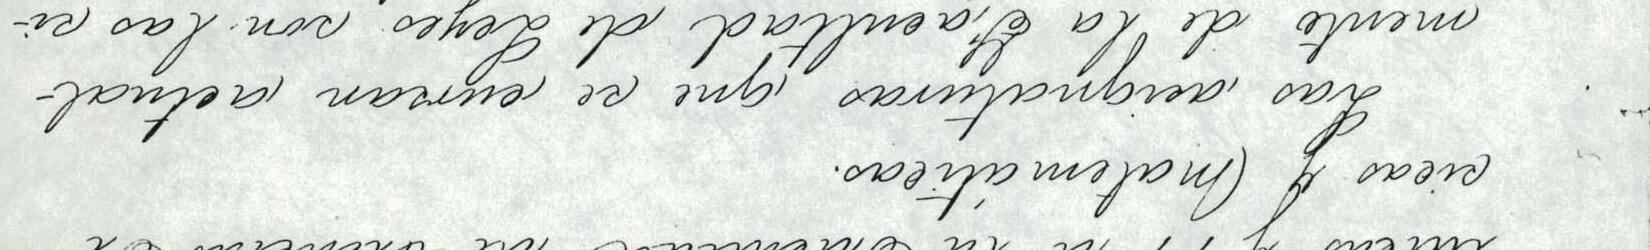 sicas y Matemáticas.
Las asignaturas que se cursan actual-
mente de la Facultad de Leyes son las si-